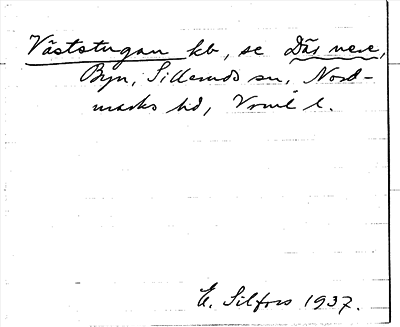 Väststugan kb, se Där nere,
Byn, Silleruds sn, Nord-
marks hd, Vrml l.
E. Silfors 1937.